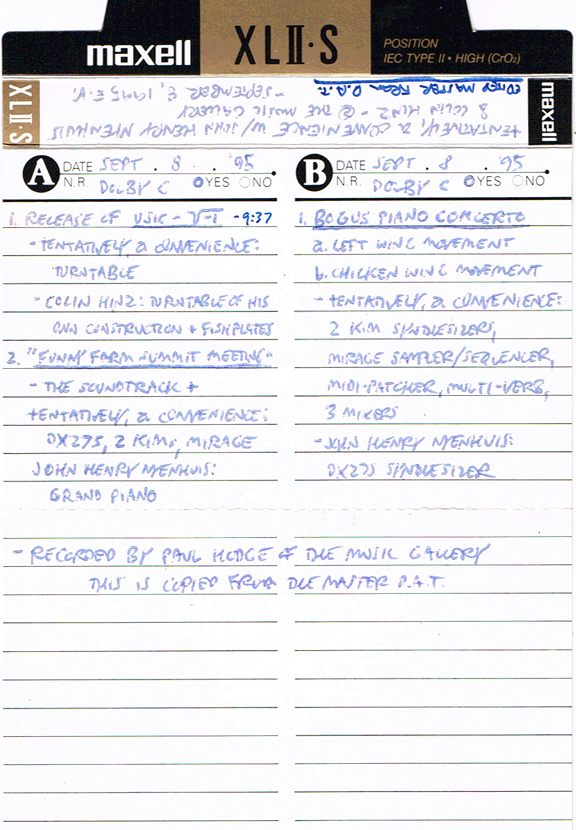 maxell XLII·S POSITION
IEC TYPE II • HIGH (CrO₂)
XLII·S
maxell
TENTATIVELY, a CONVENIENCE W/ JOHN HENRY NYENHUIS
& COLIN HINZ - @ THE MUSIC GALLERY
- SEPTEMBER 8, 1995 E.V.
EDITED MASTER FROM D.A.T.
A DATE SEPT . 8 . '95
N.R. DOLBY C YES NO
1. RELEASE OF USIC - √-1 - 9:37
- TENTATIVELY, a CONVENIENCE:
TURNTABLE
- COLIN HINZ: TURNTABLE OF HIS
OWN CONSTRUCTION + FISHPLATES
2. "FUNNY FARM SUMMIT MEETING"
- THE SOUNDTRACK +
TENTATIVELY, a CONVENIENCE:
DX27S, 2 KIMs, MIRAGE
JOHN HENRY NYENHUIS:
GRAND PIANO
B DATE SEPT . 8 '95
N.R. DOLBY C YES NO
1. BOGUS PIANO CONCERTO
a. LEFT WING MOVEMENT
b. CHICKEN WING MOVEMENT
- TENTATIVELY, a CONVENIENCE:
2 KIM SYNDLESIZERS,
MIRAGE SAMPLER/SEQUENCER,
MIDI-PATCHER, MULTI-VERB,
3 MIXERS
- JOHN HENRY NYENHUIS:
DX27S SYNDLESIZER
- RECORDED BY PAUL HODGE OF THE MUSIC GALLERY
THIS IS COPIED FROM THE MASTER D.A.T.